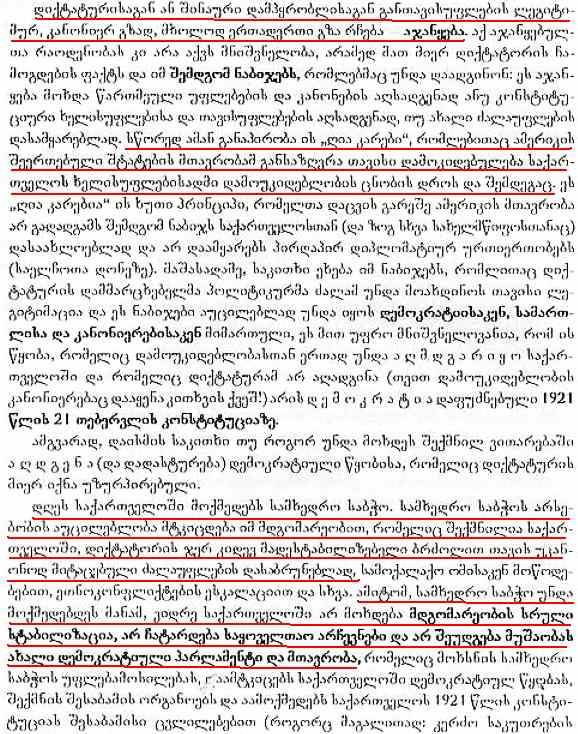 დიქტატურისაგან ან შინაური დამპყრობლისაგან განთავისუფლების ლეგიტი-
მურ, კანონიერ გზად, მხოლოდ ერთადერთი გზა რჩება – აჯანყება. აქ აჯანყებულ-
თა რაოდენობას კი არა აქვს მნიშვნელობა, არამედ მათ მიერ დიქტატორის ჩა-
მოგდების ფაქტს და იმ შემდგომ ნაბიჯებს, რომლებმაც უნდა დაადგინონ: ეს აჯან-
ყება მოხდა წართმეული უფლებების და კანონების აღსადგენად ანუ კონსტიტუ-
ციური ხელისუფლებისა და თავისუფლებების აღსადგენად, თუ ახალი ძალაუფლების
დასამყარებლად. სწორედ ამან განაპირობა ის „ღია კარები“, რომლებითაც ამერიკის
შეერთებული შტატების მთავრობამ განსაზღვრა თავისი დამოკიდებულება საქარ-
თველოს ხელისუფლებისადმი დამოუკიდებლობის ცნობის დროს და შემდეგაც. ეს
„ღია კარებია“ ის ხუთი პრინციპი, რომელთა დაცვის გარეშე ამერიკის მთავრობა
არ გადადგამს შემდგომ ნაბიჯს საქართველოსთან (და ზოგ სხვა სახელმწიფოსთანაც)
დასაახლოებლად და არ დაამყარებს პირდაპირ დიპლომატიურ ურთიერთობებს
(საელჩოთა დონეზე). მაშასადამე, საკითხი ეხება იმ ნაბიჯებს, რომლითაც დიქ-
ტატურის დამმარცხებელმა პოლიტიკურმა ძალამ უნდა მოახდინოს თავისი ლე-
გიტიმაცია და ეს ნაბიჯები აუცილებლად უნდა იყოს დემოკრატიისაკენ, სამართ-
ლისა და კანონიერებისაკენ მიმართული, ეს მით უფრო მნიშვნელოვანია, რომ ის
წყობა, რომელიც დამოუკიდებლობასთან ერთად უნდა ა ღ მ დ გ ა რ ი ყ ო საქარ-
თველოში და რომელიც დიქტატურამ არ აღადგინა (თვით დამოუკიდებლობის
კანონიერებაც დააყენა კითხვის ქვეშ!) არის დ ე მ ო კ რ ა ტ ი ა დაფუძნებული 1921
წლის 21 თებერვლის კონსტიტუციაზე.
ამგვარად, დაისმის საკითხი თუ როგორ უნდა მოხდეს შექმნილ ვითარებაში
ა ღ დ გ ე ნ ა (და დადასტურება) დემოკრატიული წყობისა, რომელიც დიქტატურის
მიერ იქნა უზურპირებული.
დღეს საქართველოში მოქმედებს სამხედრო საბჭო. სამხედრო საბჭოს არსე-
ბობის აუცილებლობა მტკიცდება იმ მდგომარეობით, რომელიც შექმნილია საქარ-
თველოში, დიქტატორის ჯერ კიდევ მადესტაბილიზებელი ბრძოლით თავის უკან-
ონოდ მიტაცებული ძალაუფლების დასაბრუნებლად, სამოქალაქო ომისაკენ მოწოდე-
ბებით, ეთნოკონფლიქტების ესკალაციით და სხვა. ამიტომ, სამხედრო საბჭო უნდა
მოქმედებდეს მანამ, ვიდრე საქართველოში არ მოხდება მდგომარეობის სრული
სტაბილიზაცია, არ ჩატარდება საყოველთაო არჩევნები და არ შეუდგება მუშაობას
ახალი დემოკრატიული პარლამენტი და მთავრობა, რომელიც მოხსნის სამხედრო
საბჭოს უფლებამოსილებას, დაამტკიცებს საქართველოში დემოკრატიულ წყობას,
შექმნის შესაბამის ორგანოებს და აამოქმედებს საქართველოს 1921 წლის კონსტი-
ტუციას შესაბამისი ცვლილებებით (როგორც მაგალითად: კერძო საკუთრების